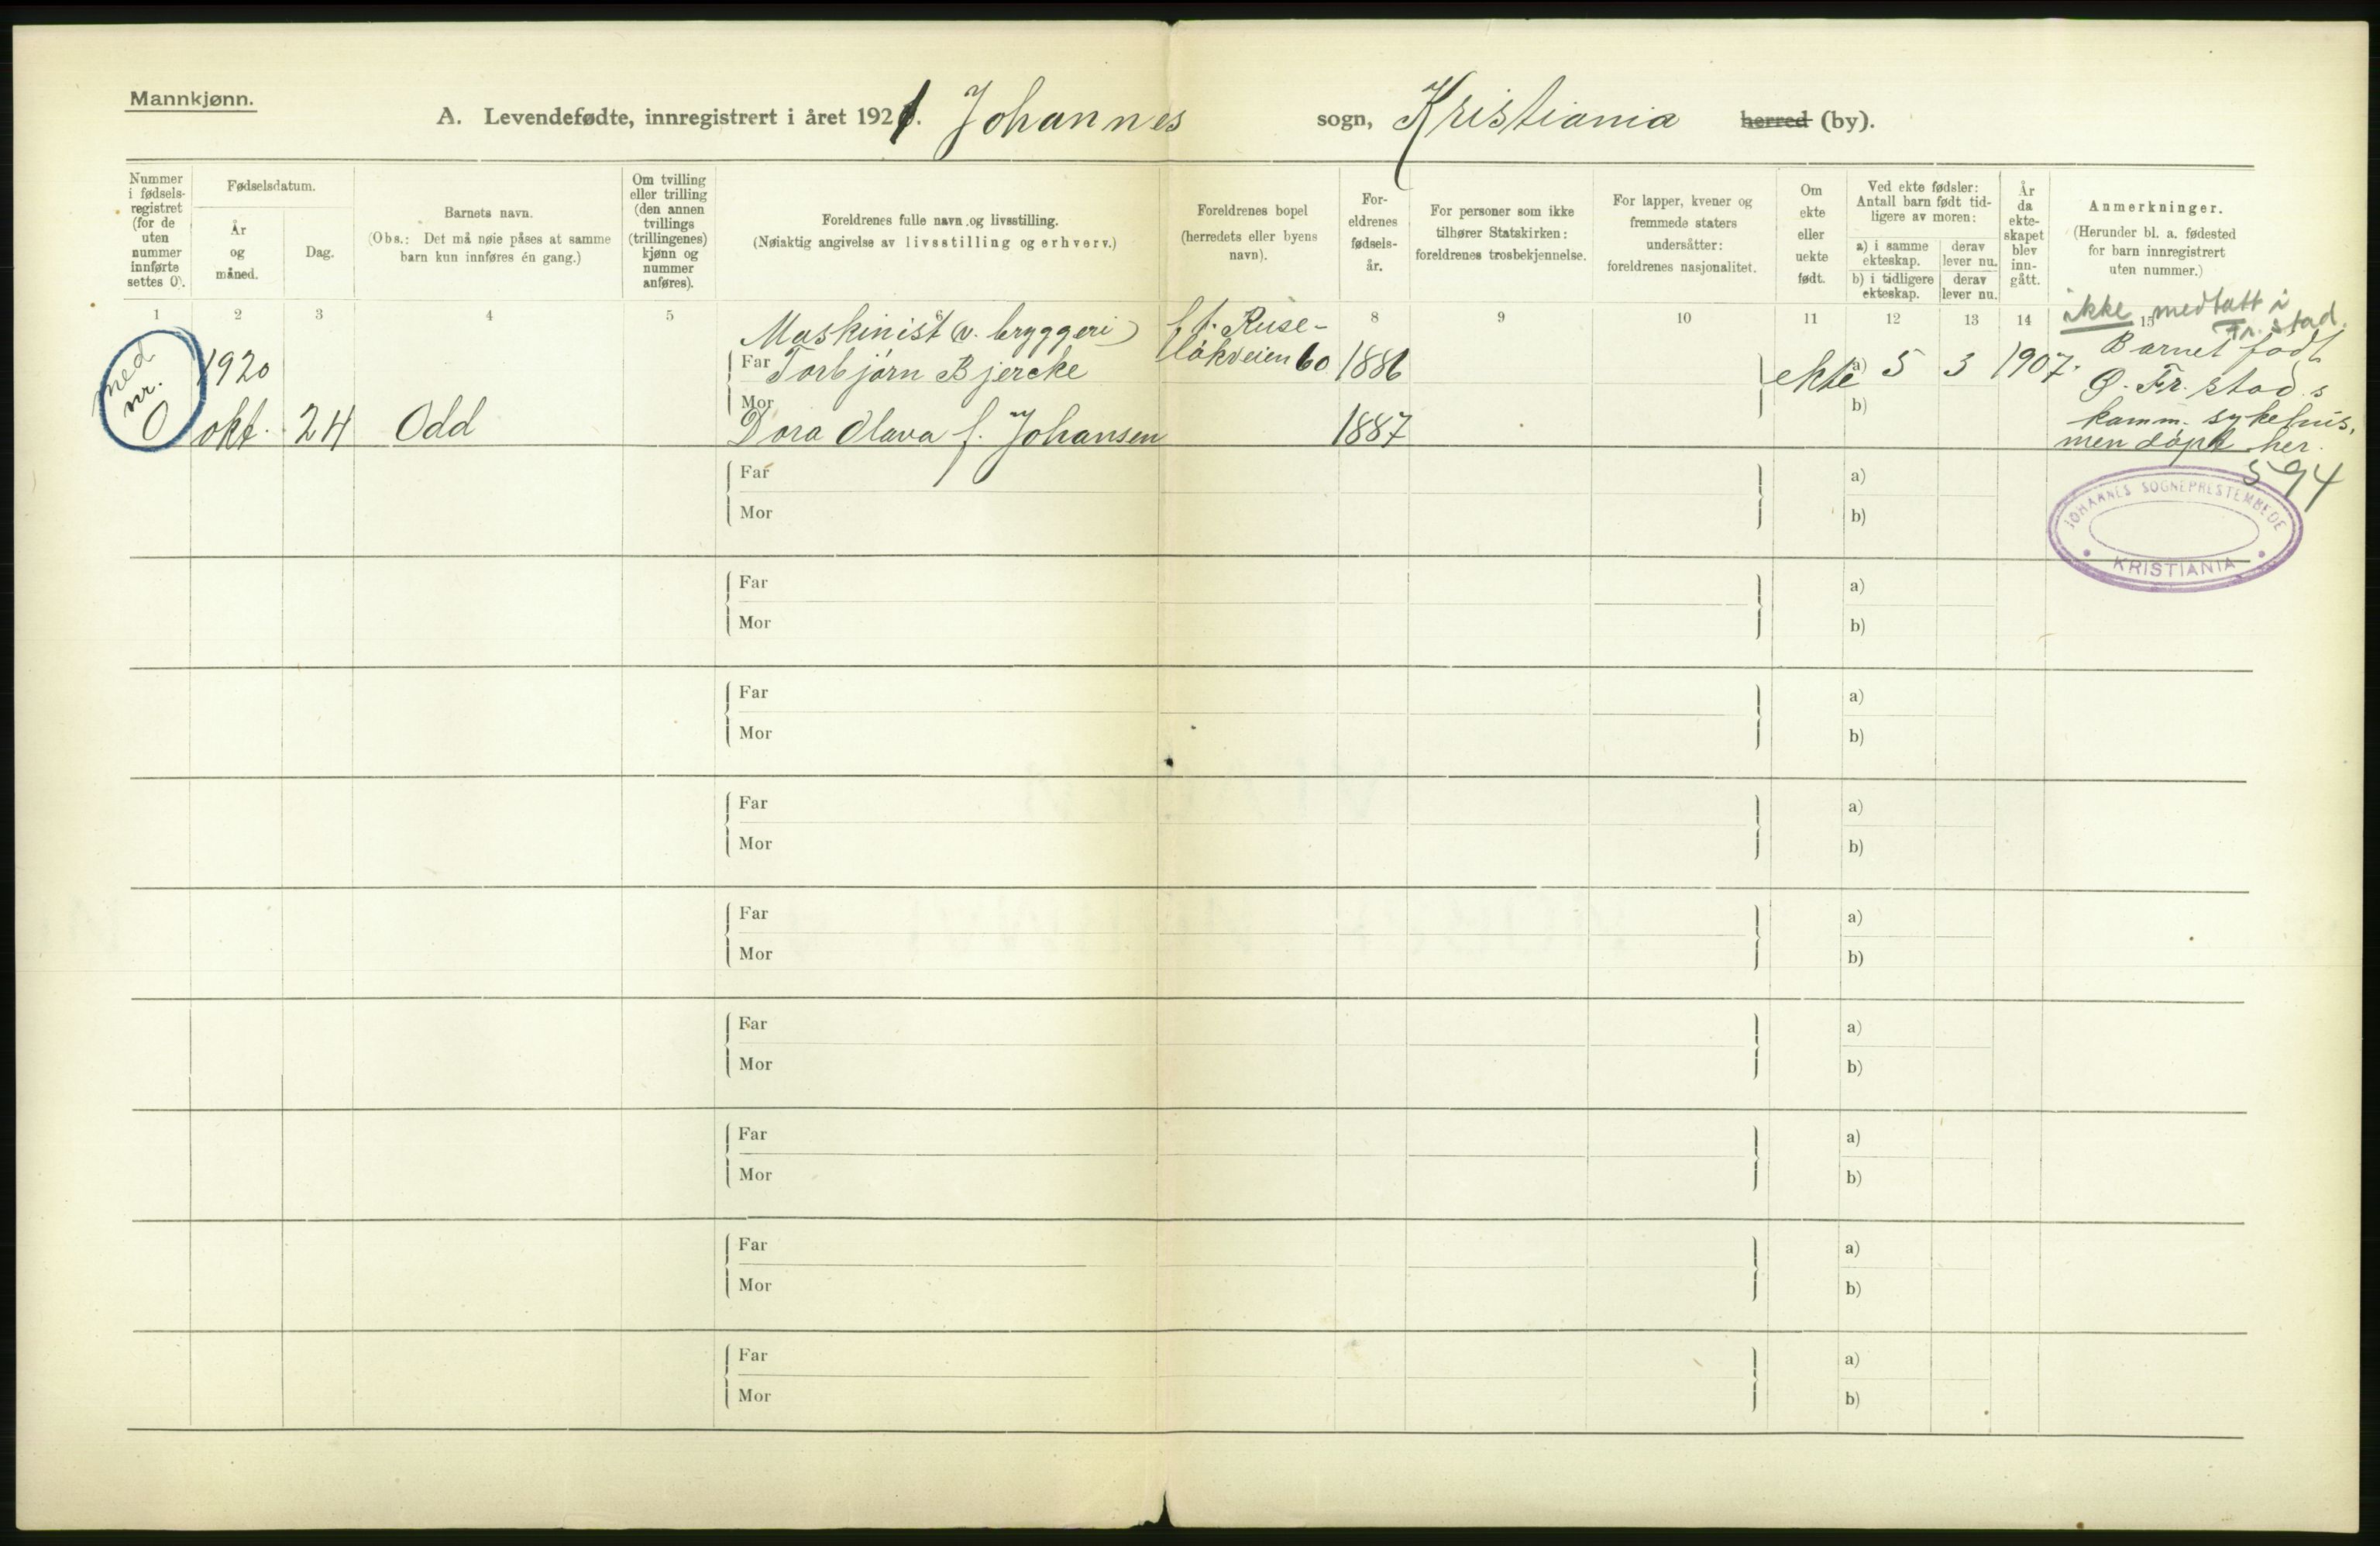 Mannkjønn.
A. Levendefødte, innregistrert i året 1921. Johannes sogn, Kristiania herred (by).
Nummer i fødsels-registret (for de uten nummer innførte settes 0).
Fødselsdatum.
År og måned.
Dag.
Barnets navn.
(Obs.: Det må nøie påses at samme barn kun innføres én gang.)
Om tvilling eller trilling (den annen tvillings (trillingenes) kjønn og nummer anføres).
Foreldrenes fulle navn og livsstilling.
(Nøiaktig angivelse av livsstilling og erhverv.)
Foreldrenes bopel (herredets eller byens navn).
For-eldrenes fødsels-år.
For personer som ikke tilhører Statskirken: foreldrenes trosbekjennelse.
For lapper, kvener og fremmede staters undersåtter: foreldrenes nasjonalitet.
Om ekte eller uekte født.
Ved ekte fødsler: Antall barn født tid-ligere av moren:
a) i samme ekteskap.
derav lever nu.
b) i tidligere ekteskap.
derav lever nu.
År da ekte-skapet blev inn-gått.
Anmerkninger.
(Herunder bl. a. fødested for barn innregistrert uten nummer.)
1 2 3 4 5 8 9 10 11 12 13 14 15
ikke medtatt i
Fr. stad.
Maskinist (v. bryggeri)
Ruse-
løkveien 60
Barnet født
ned nr.
1920
Far Torbjørn Bjercke 1886 ekte a) 5 3 1907.
Fr. stads
0 okt. 24 Odd
Mor Dora Olava f. Johansen 1887 b)
komm. sykehus,
men døpt her.
594
JOHANNES SOGNEPRESTEMBEDE
KRISTIANIA
Far a)
Mor b)
Far a)
Mor b)
Far a)
Mor b)
Far a)
Mor b)
Far a)
Mor b)
Far a)
Mor b)
Far a)
Mor b)
Far a)
Mor b)
Far a)
Mor b)